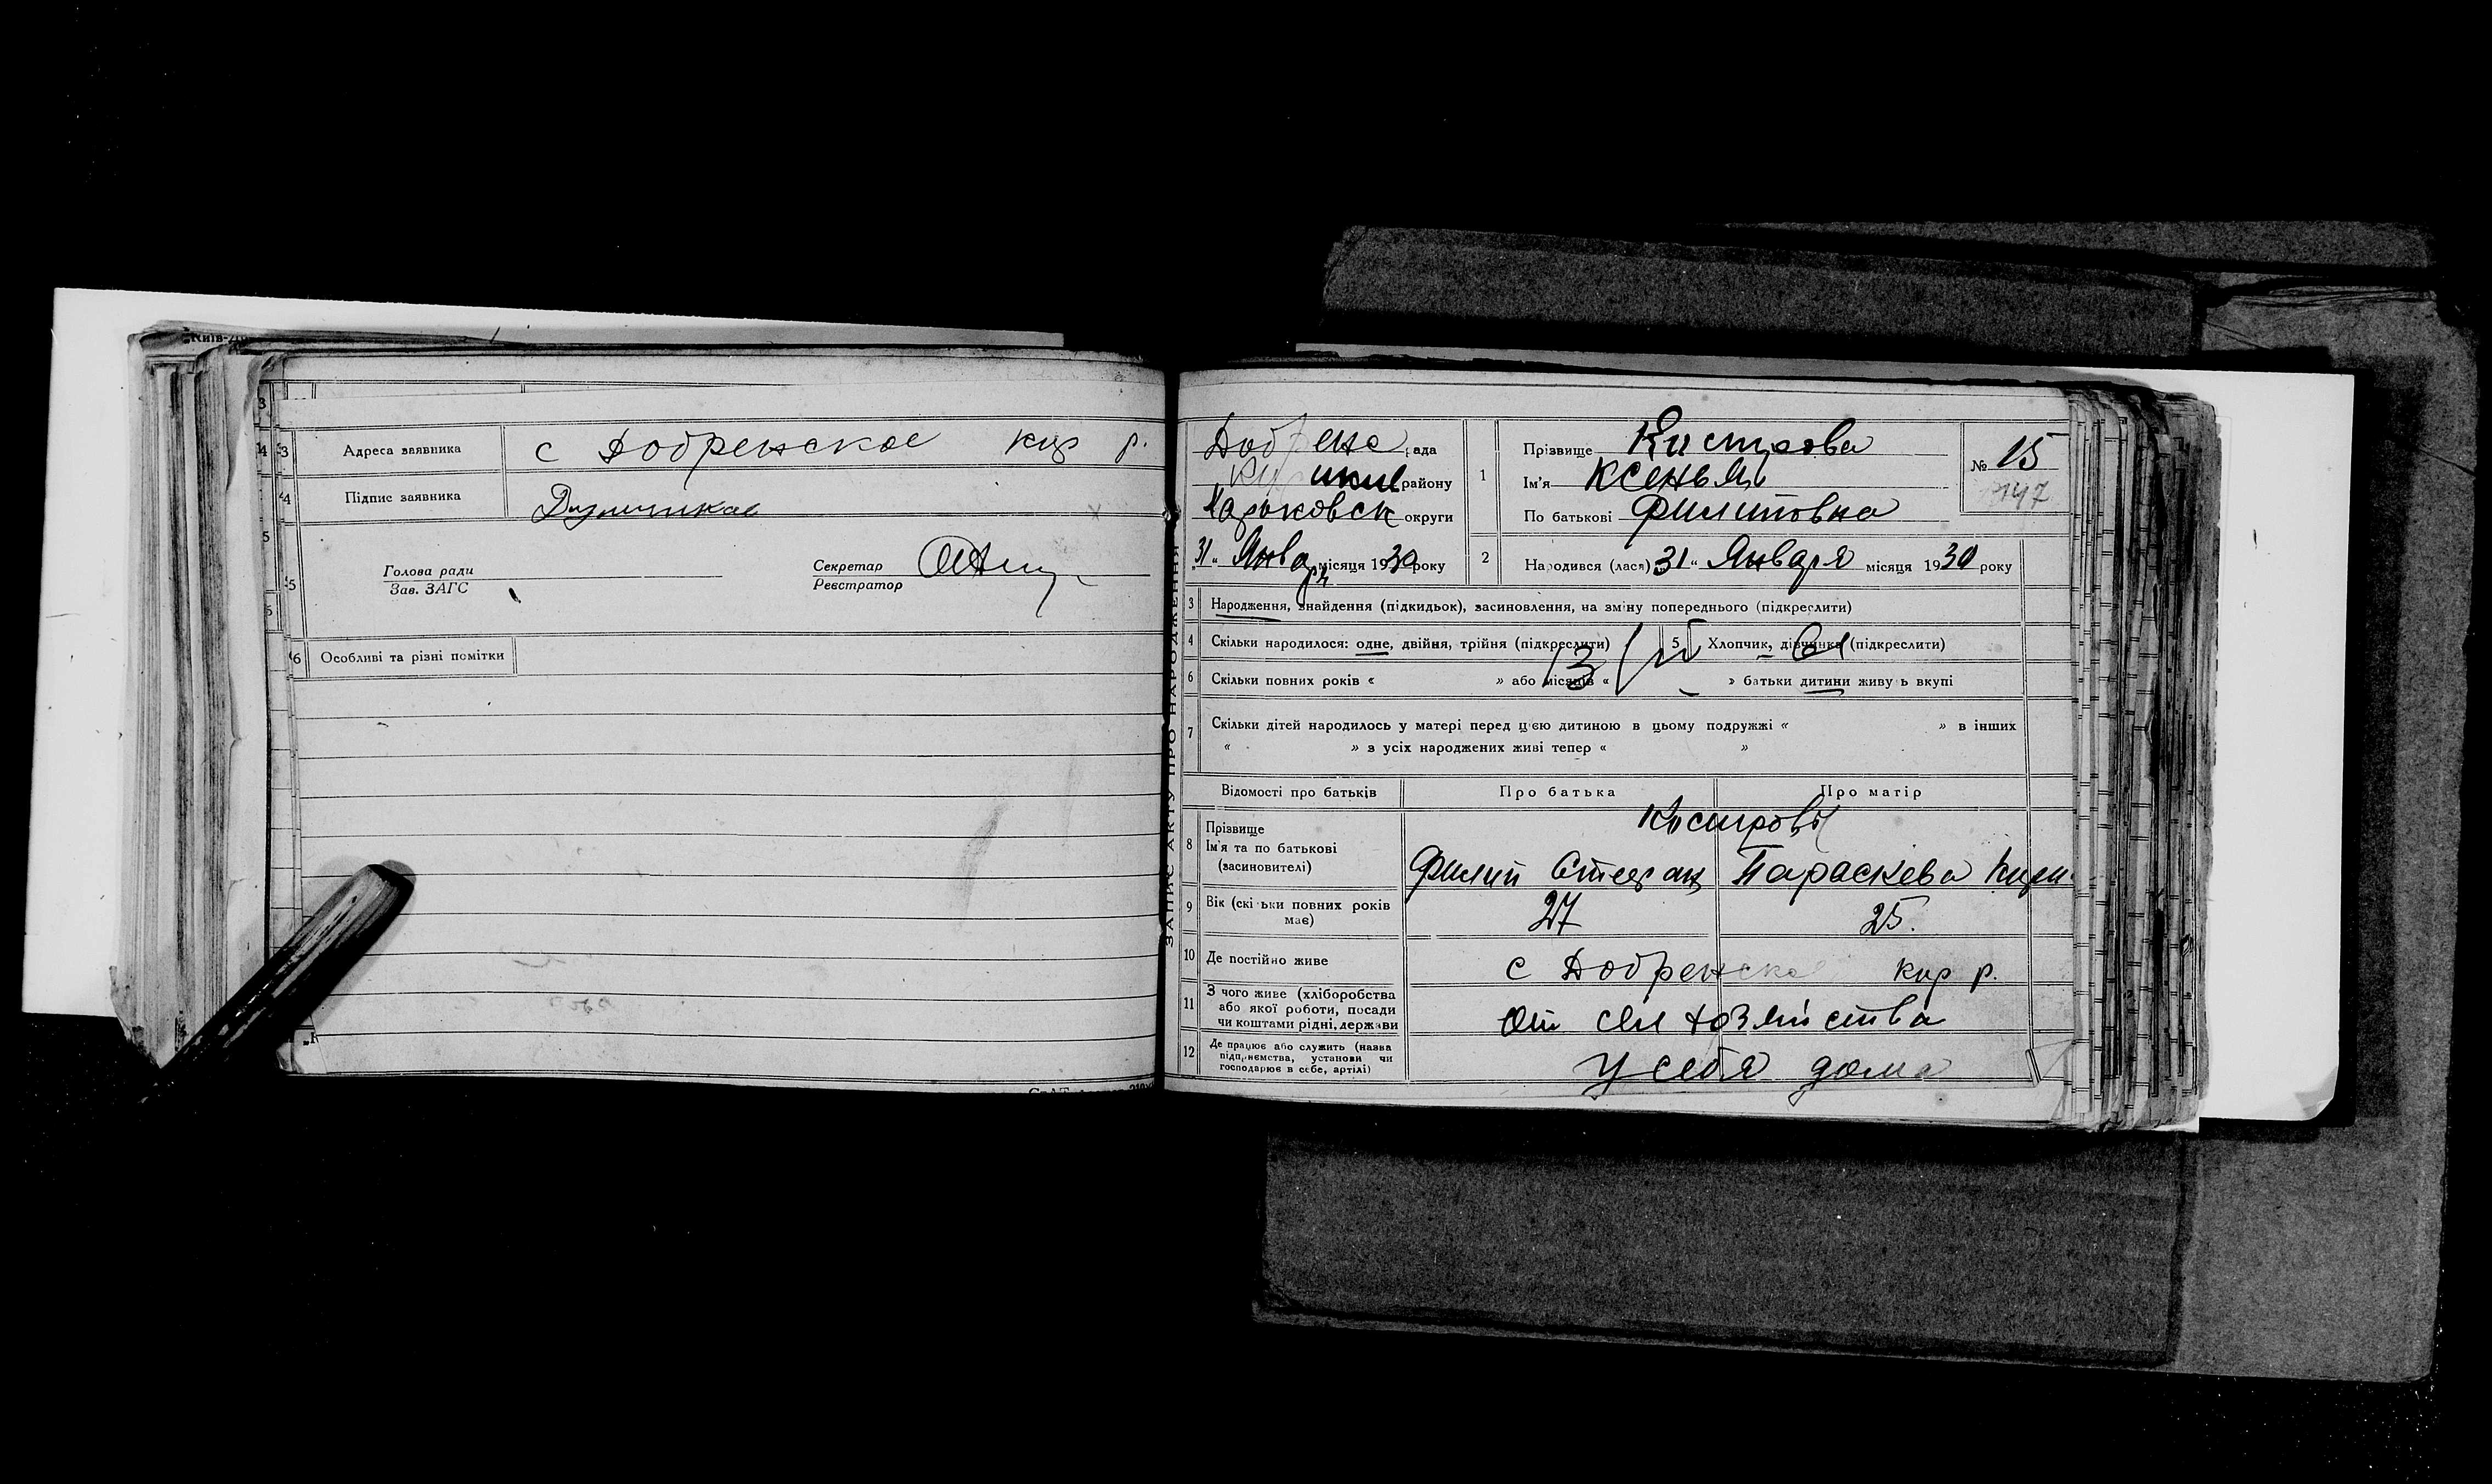 Адреса заявника с Добренское кир р.
Підпис заявника
Голова ради
Зав. ЗАГС
Секретар
Реєстратор
6 Особливі та різні помітки
ЗАПИС АКТУ ПРО НАРОДЖЕННЯ
Добрене рада
району
Харьковск округи
31 „ Января місяця 1930 року
1 Прізвище Кистрова
Ім'я Ксенья
По батькові Филиповна
№ 15
2 Народився (лася) 31 „ Января місяця 1930 року
3 Народження, знайдення (підкидьок), засиновлення, на зміну попереднього (підкреслити)
4 Скільки народилося: одне, двійня, трійня (підкреслити)
5 Хлопчик, дівчинка (підкреслити)
6 Скільки повних років « » або місяців « » батьки дитини живуть вкупі
7 Скільки дітей народилось у матері перед цією дитиною в цьому подружжі « » в інших
« » з усіх народжених живі тепер « »
Відомості про батьків Про батька Про матір
8 Прізвище
Ім'я та по батькові
(засиновителі)
Кистровы
Филип Стефан Параскева Кири
9 Вік (скільки повних років
має)
27 25.
10 Де постійно живе с Добренско кир р.
11 З чого живе (хліборобства
або якої роботи, посади
чи коштами рідні, держави
От сел хозяйства
12 Де працює або служить (назва
підприємства, установи чи
господарює в себе, артілі)
У себя дома